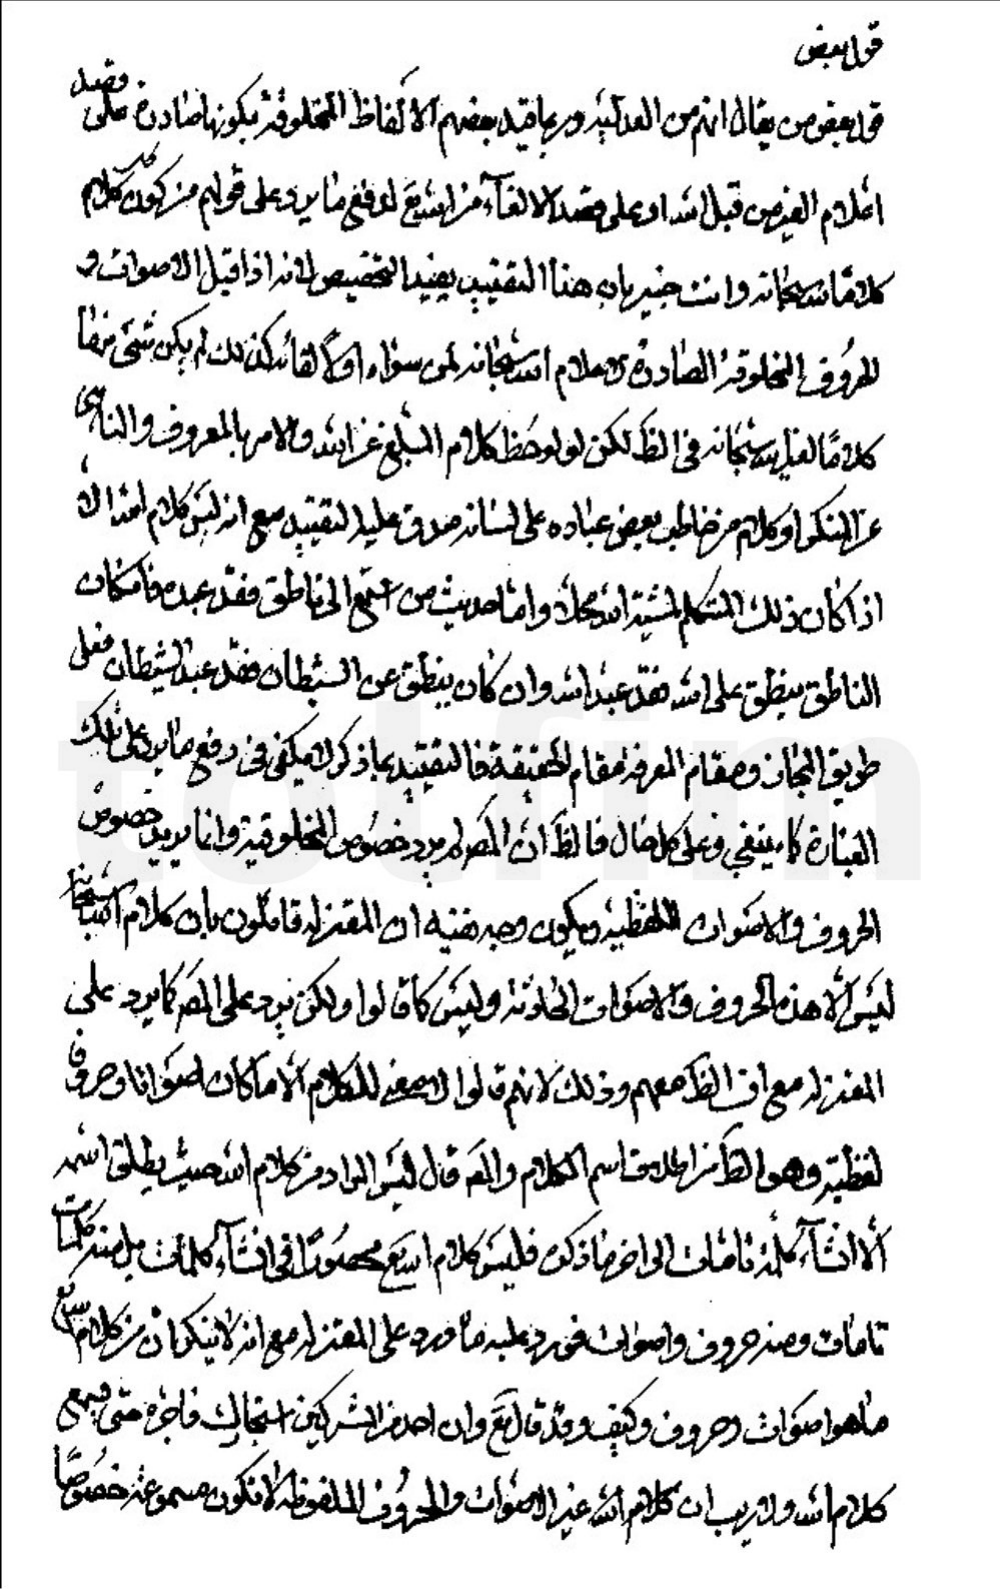 قول بعض
قول بعض من يقال انهم من العدلية وربما قيد بعضهم الالفاظ المخلوقة بكونها صادرة على قصد
اعلام الغير من قبل الله او على قصد الالقاء من الله تع لدفع ما يرد على قولهم من كون كل كلام
كلاما لله سبحانه وانت خبير بان هذا التقييد يفيد التخصيص لانه اذا قيل الاصوات و
الحروف المخلوقة الصادرة لاعلام الله سبحانه لمن سواه او لالقائه كذلك لم يكن شئ منها
كلاما لغير الله سبحانه في الظ لكن لو لوحظ كلام المبلغ عن الله والامر بالمعروف والناهي
عن المنكر او كلام من خاطب بعض عباده على لسانه صدق عليه التقييد مع انه ليس كلام الله الا
اذا كان ذلك المتكلم لمشية الله محلا واما حديث من استمع الى ناطق فقد عبده فان كان
الناطق ينطق على الله فقد عبد الله وان كان ينطق عن الشيطان فقد عبد الشيطان فعلى
طريق المجاز ومقام المعرفة مقام الحقيقة فالتقييد بما ذكر لا يكفي في دفع ما يرد على تلك
العبارة كما ينبغي وعلى كل حال فالظ ان المصـ لم يرد خصوص المخلوقية وانما يريد خصوص
الحروف والاصوات اللفظية ويكون وجه نفيه ان المعتزلة قائلون بان كلام الله سبحانه
ليس الا هذه الحروف والاصوات الحادثة وليس كما قالوا ولكن يرد على المصـ كما يرد على
المعتزلة مع ان الظ معهم وذلك لانهم قالوا لا معنى للكلام الا ما كان اصواتا وحروفا
لفظية وهو الظ من اطلاق اسم الكلام والمصـ قال ليس المراد من كلام الله حيث يطلق اسمه
الا انشاء كلمة تامات الى اخر ما ذكره فليس كلام الله تع محصورا في انشاء كلمات بل منه كلمات
تامات ومنه حروف واصوات فيرد عليه ما ورد على المعتزلة مع انه لا ينكر ان من كلام الله تع
ما هو اصوات وحروف وكيف وقد قال تع وان احد من المشركين استجارك فاجره حتى يسمع
كلام الله ولا ريب ان كلام الله غير الاصوات والحروف الملفوظة لا تكون مسموعة خصوصا